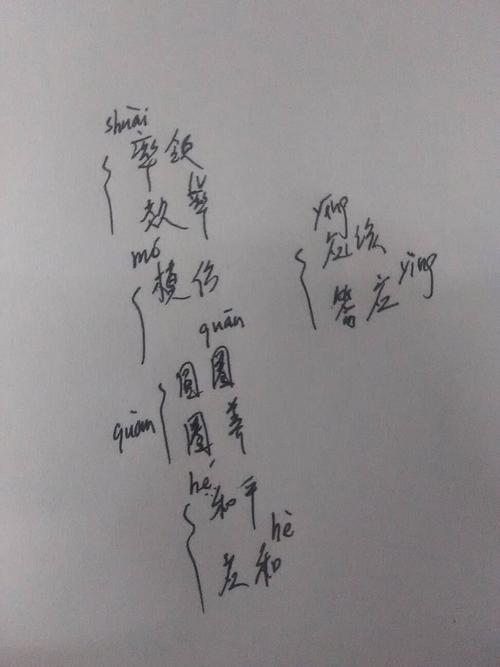 shuài
率领
lǜ
效率
mó
模仿
quān
圆圈
quàn
圈养
hé
和平
hè
应和
yīng
应该
yìng
答应